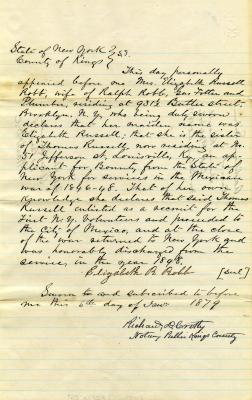 State of New York } SS.
County of Kings }
This day personally
appeared before me Mrs. Elizabeth Russell
Robb, wife of Ralph Robb, Gas Fitter and
Plumber, residing at 931½ Butler street,
Brooklyn, N.Y. who being duly sworn
declares that her maiden name was
Elizabeth Russell; that she is the sister
of Thomas Russell now residing at No.
51 Jefferson St, Louisville, Ky., an ap-
plicant for Bounty from the State of
New York for services in the Mexican
war of 1846-48. That of her own
knowledge she declares that said Thomas
Russell enlisted as a recruit for the
First N.Y. Volunteers and proceeded to
the City of Mexico, and at the close
of the war returned to New York and
was honorably discharged from the
service, in the year 1848.
Elizabeth R Robb [seal]
Sworn to and subscribed to before
me this 6th day of Jany 1879
Richard
Notary Public Kings County